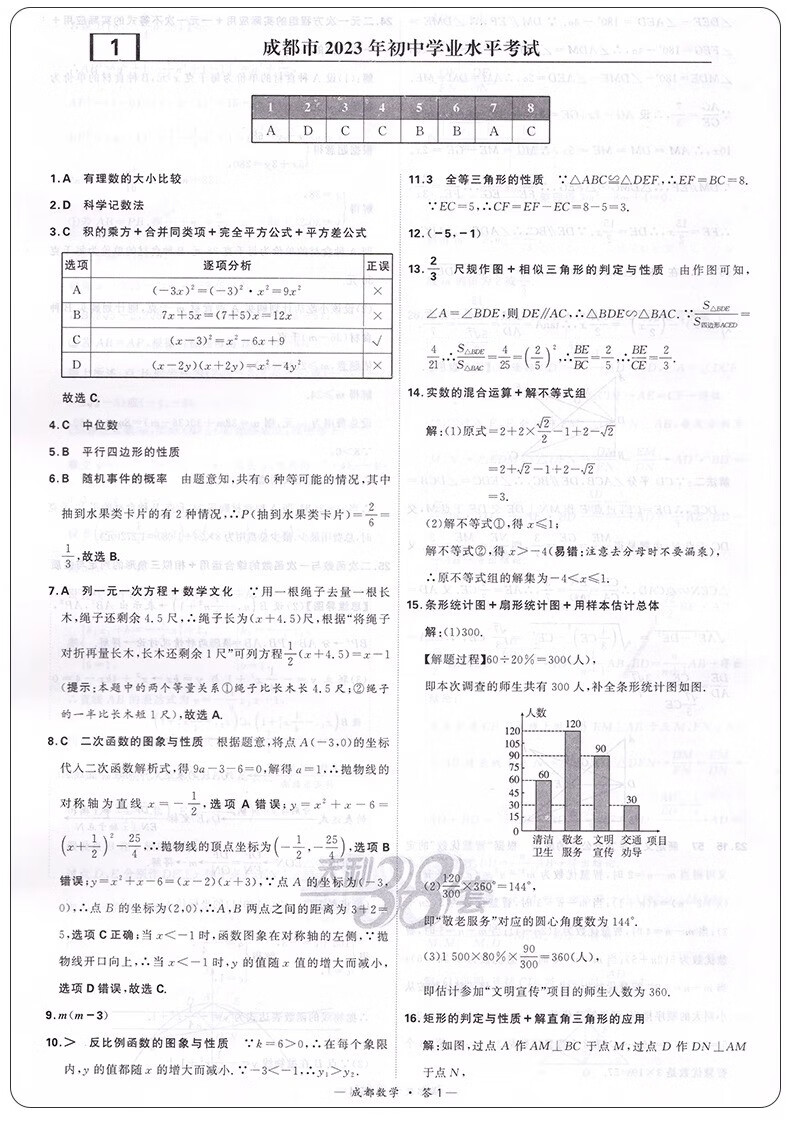 1
成都市 2023 年初中学业水平考试
1 2 3 4 5 6 7 8
A D C C B B A C
1.A 有理数的大小比较
2.D 科学记数法
3.C 积的乘方+合并同类项+完全平方公式+平方差公式
选项 逐项分析 正误
A (-3x)²=(-3)²·x²=9x² ×
B 7x+5x=(7+5)x=12x ×
C (x-3)²=x²-6x+9 √
D (x-2y)(x+2y)=x²-4y² ×
故选 C.
4.C 中位数
5.B 平行四边形的性质
6.B 随机事件的概率 由题意知,共有 6 种等可能的情况,其中
抽到水果类卡片的有 2 种情况,∴P(抽到水果类卡片)=2/6=
1/3,故选 B.
7.A 列一元一次方程+数学文化 ∵用一根绳子去量一根长
木,绳子还剩余 4.5 尺,∴绳子长为(x+4.5)尺,根据“将绳子
对折再量长木,长木还剩余 1 尺”可列方程1/2(x+4.5)=x-1
(提示:本题中的两个等量关系①绳子比长木长 4.5 尺;②绳子
的一半比长木短 1 尺),故选 A.
8.C 二次函数的图象与性质 根据题意,将点 A(-3,0)的坐标
代入二次函数解析式,得 9a-3-6=0,解得 a=1,∴抛物线的
对称轴为直线 x=-1/2,选项 A 错误;y=x²+x-6=
(x+1/2)²-25/4,∴抛物线的顶点坐标为(-1/2,-25/4),选项 B
错误;y=x²+x-6=(x-2)(x+3),∵点 A 的坐标为(-3,
0),∴点 B 的坐标为(2,0),∴A,B 两点之间的距离为 3+2=
5,选项 C 正确;当 x<-1 时,函数图象在对称轴的左侧,∵抛
物线开口向上,∴当 x<-1 时,y 的值随 x 值的增大而减小,
选项 D 错误,故选 C.
9.m(m-3)
10.> 反比例函数的图象与性质 ∵k=6>0,∴在每个象限
内,y 的值都随 x 的增大而减小.∵-3<-1,∴y₁>y₂.
11.3 全等三角形的性质 ∵△ABC≌△DEF,∴EF=BC=8.
∵EC=5,∴CF=EF-EC=8-5=3.
12.(-5,-1)
13.2/3 尺规作图+相似三角形的判定与性质 由作图可知,
∠A=∠BDE,则 DE//AC,∴△BDE∽△BAC.∵S△BDE/S四边形ACED=
4/21,∴S△BDE/S△BAC=4/25=(2/5)²,∴BE/BC=2/5,∴BE/CE=2/3.
14.实数的混合运算+解不等式组
解:(1)原式=2+2×√2/2-1+2-√2
=2+√2-1+2-√2
=3.
(2)解不等式①,得 x≤1;
解不等式②,得 x>-4(易错:注意去分母时不要漏乘),
∴原不等式组的解集为-4<x≤1.
15.条形统计图+扇形统计图+用样本估计总体
解:(1)300.
【解题过程】60÷20%=300(人),
即本次调查的师生共有 300 人,补全条形统计图如图.
人数
120
105
90
75
60
45
30
15
0
60
120
90
30
清洁 敬老 文明 交通 项目
卫生 服务 宣传 劝导
(2)120/300×360°=144°,
即“敬老服务”对应的圆心角度数为 144°.
(3)1 500×80%×90/300=360(人),
即估计参加“文明宣传”项目的师生人数为 360.
16.矩形的判定与性质+解直角三角形的应用
解:如图,过点 A 作 AM⊥BC 于点 M,过点 D 作 DN⊥AM
于点 N,
天利38套
— 成都数学 · 答 1 —